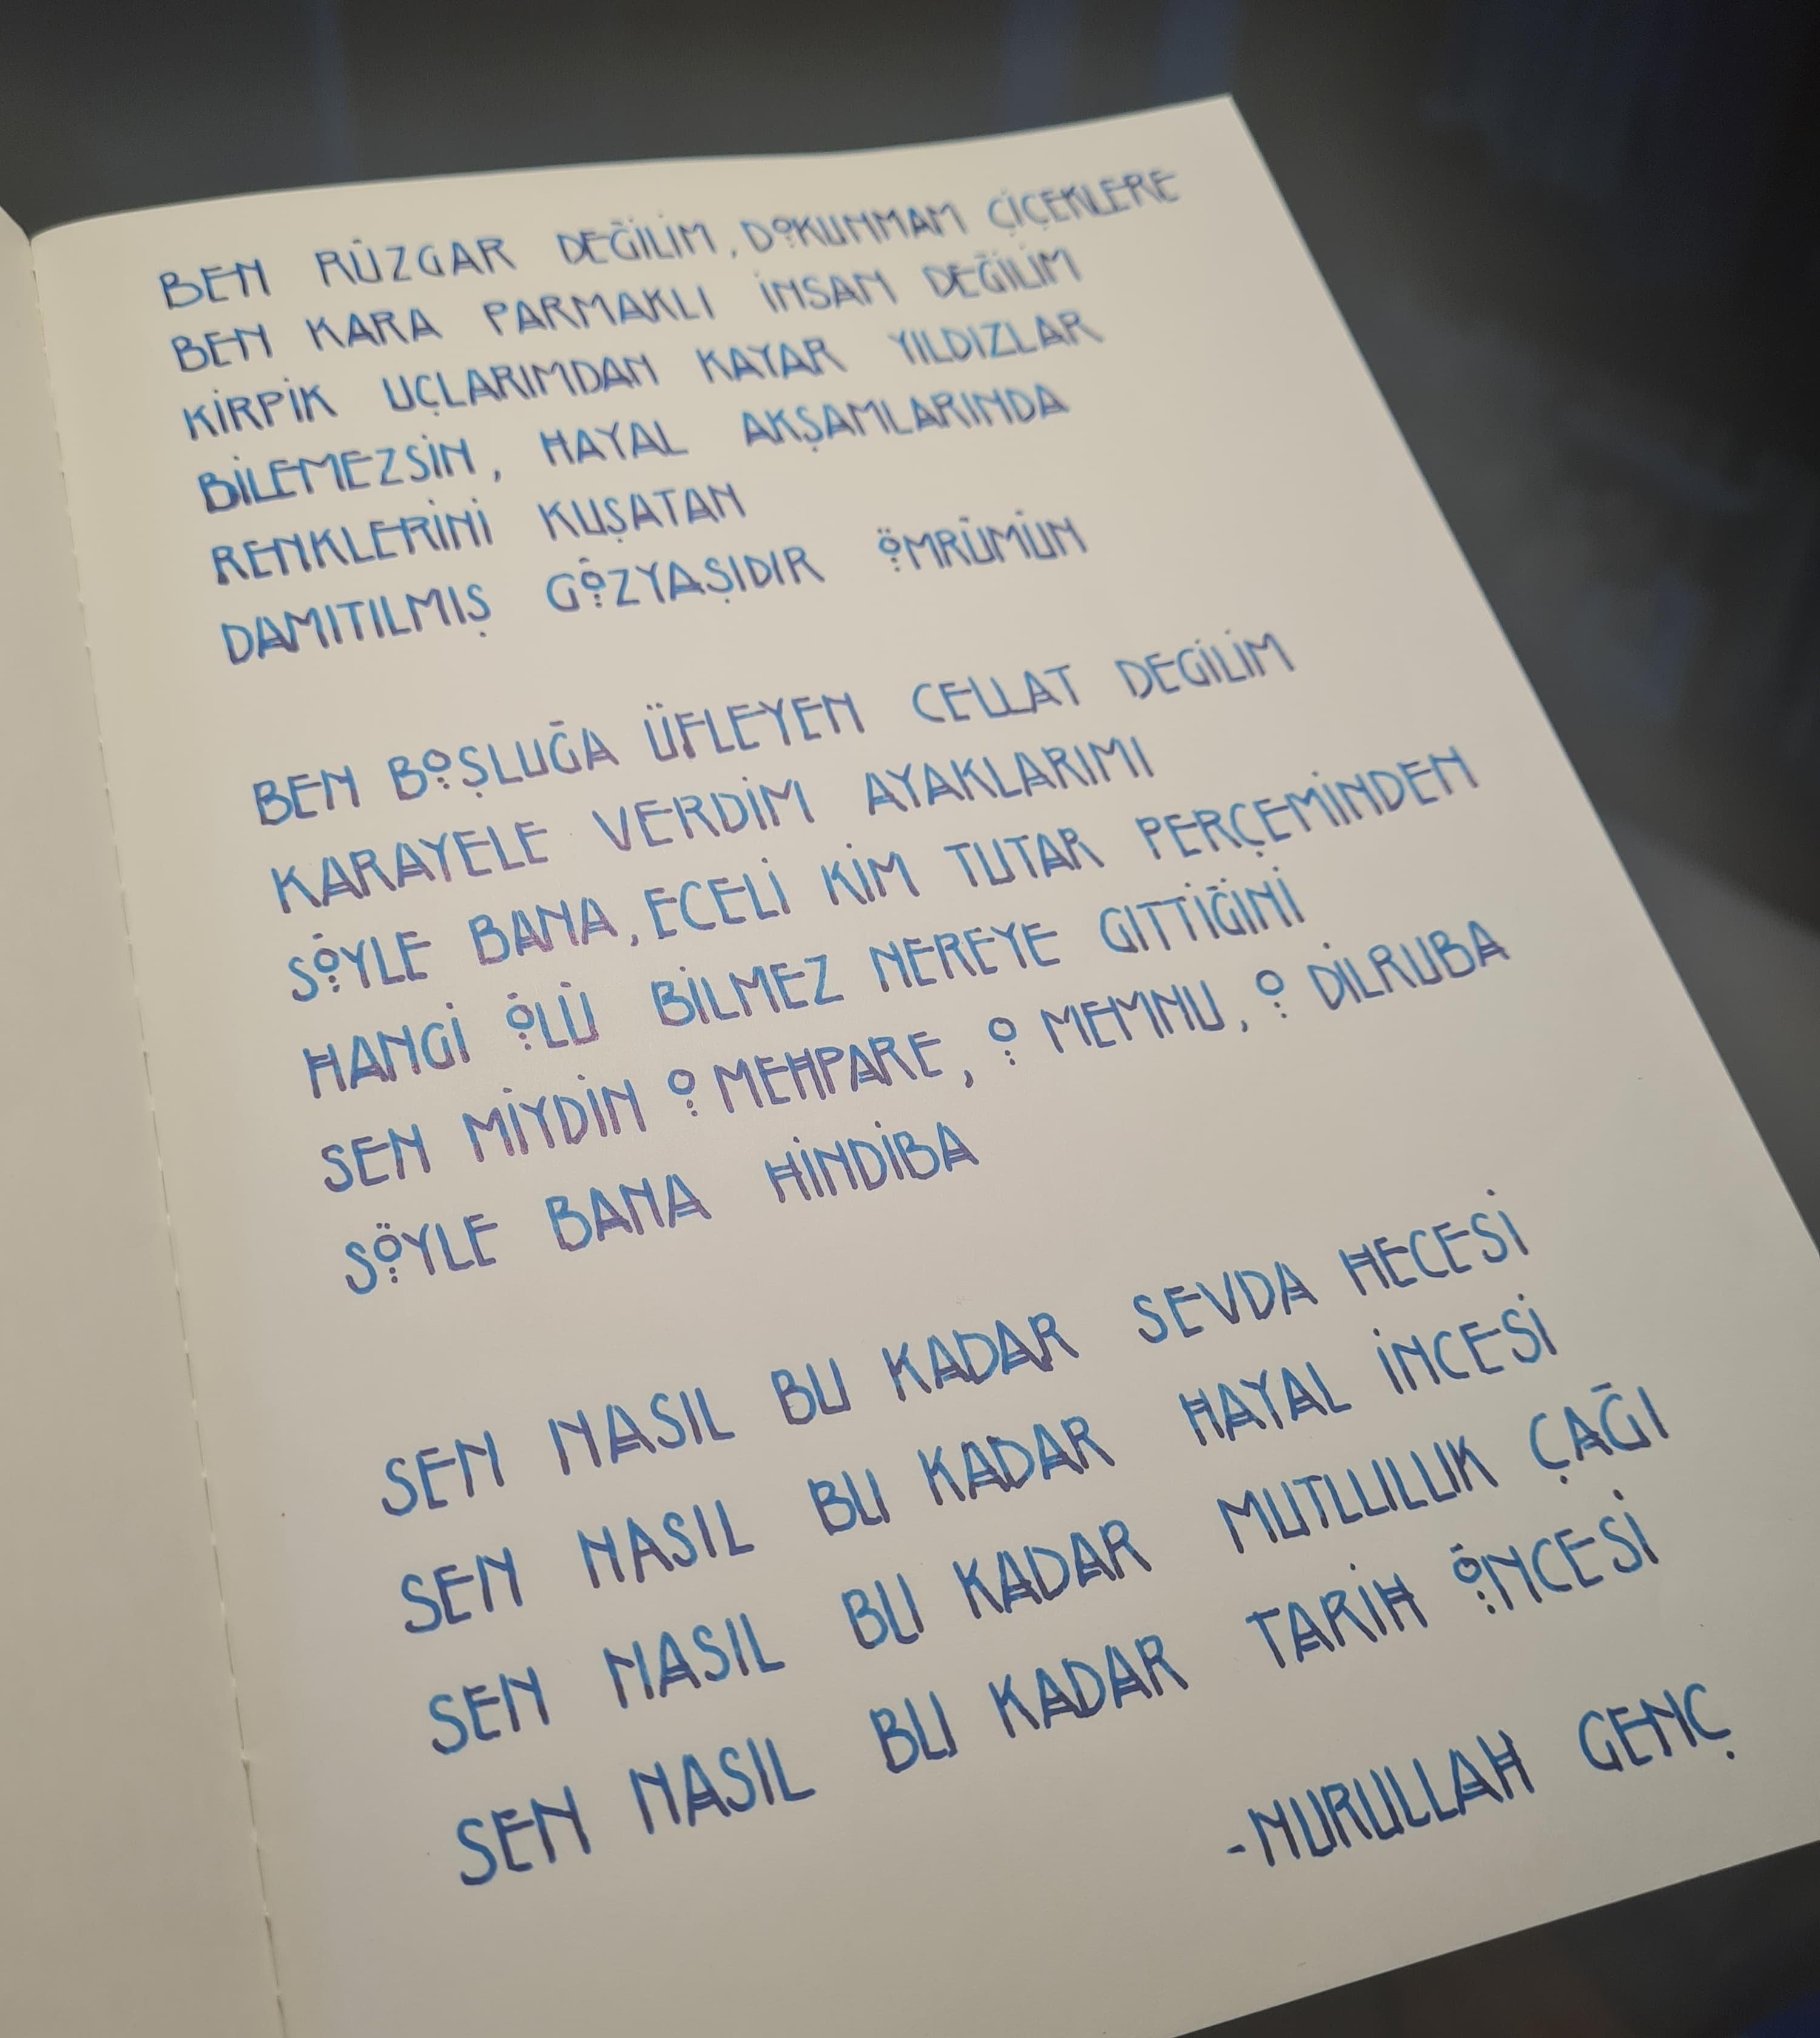 BEN RÜZGAR DEĞİLİM, DOKUNMAM ÇİÇEKLERE
BEN KARA PARMAKLI İNSAN DEĞİLİM
KİRPİK UÇLARIMDAN KAYAR YILDIZLAR
BİLEMEZSİN, HAYAL AKŞAMLARINDA
RENKLERİNİ KUŞATAN
DAMITILMIŞ GÖZYAŞIDIR ÖMRÜMÜN
BEN BOŞLUĞA ÜFLEYEN CELLAT DEGİLİM
KARAYELE VERDİM AYAKLARIMI
SÖYLE BANA, ECELİ KİM TUTAR PERÇEMİNDEN
HANGİ ÖLÜ BİLMEZ NEREYE GITTİĞİNİ
SEN MİYDİN O MEHPARE, O MEMNU, O DİLRUBA
SÖYLE BANA HİNDİBA
SEN NASIL BU KADAR SEVDA HECESİ
SEN NASIL BU KADAR HAYAL İNCESİ
SEN NASIL BU KADAR MUTLULUK ÇAĞI
SEN NASIL BU KADAR TARİH ÖNCESİ
-NURULLAH GENÇ